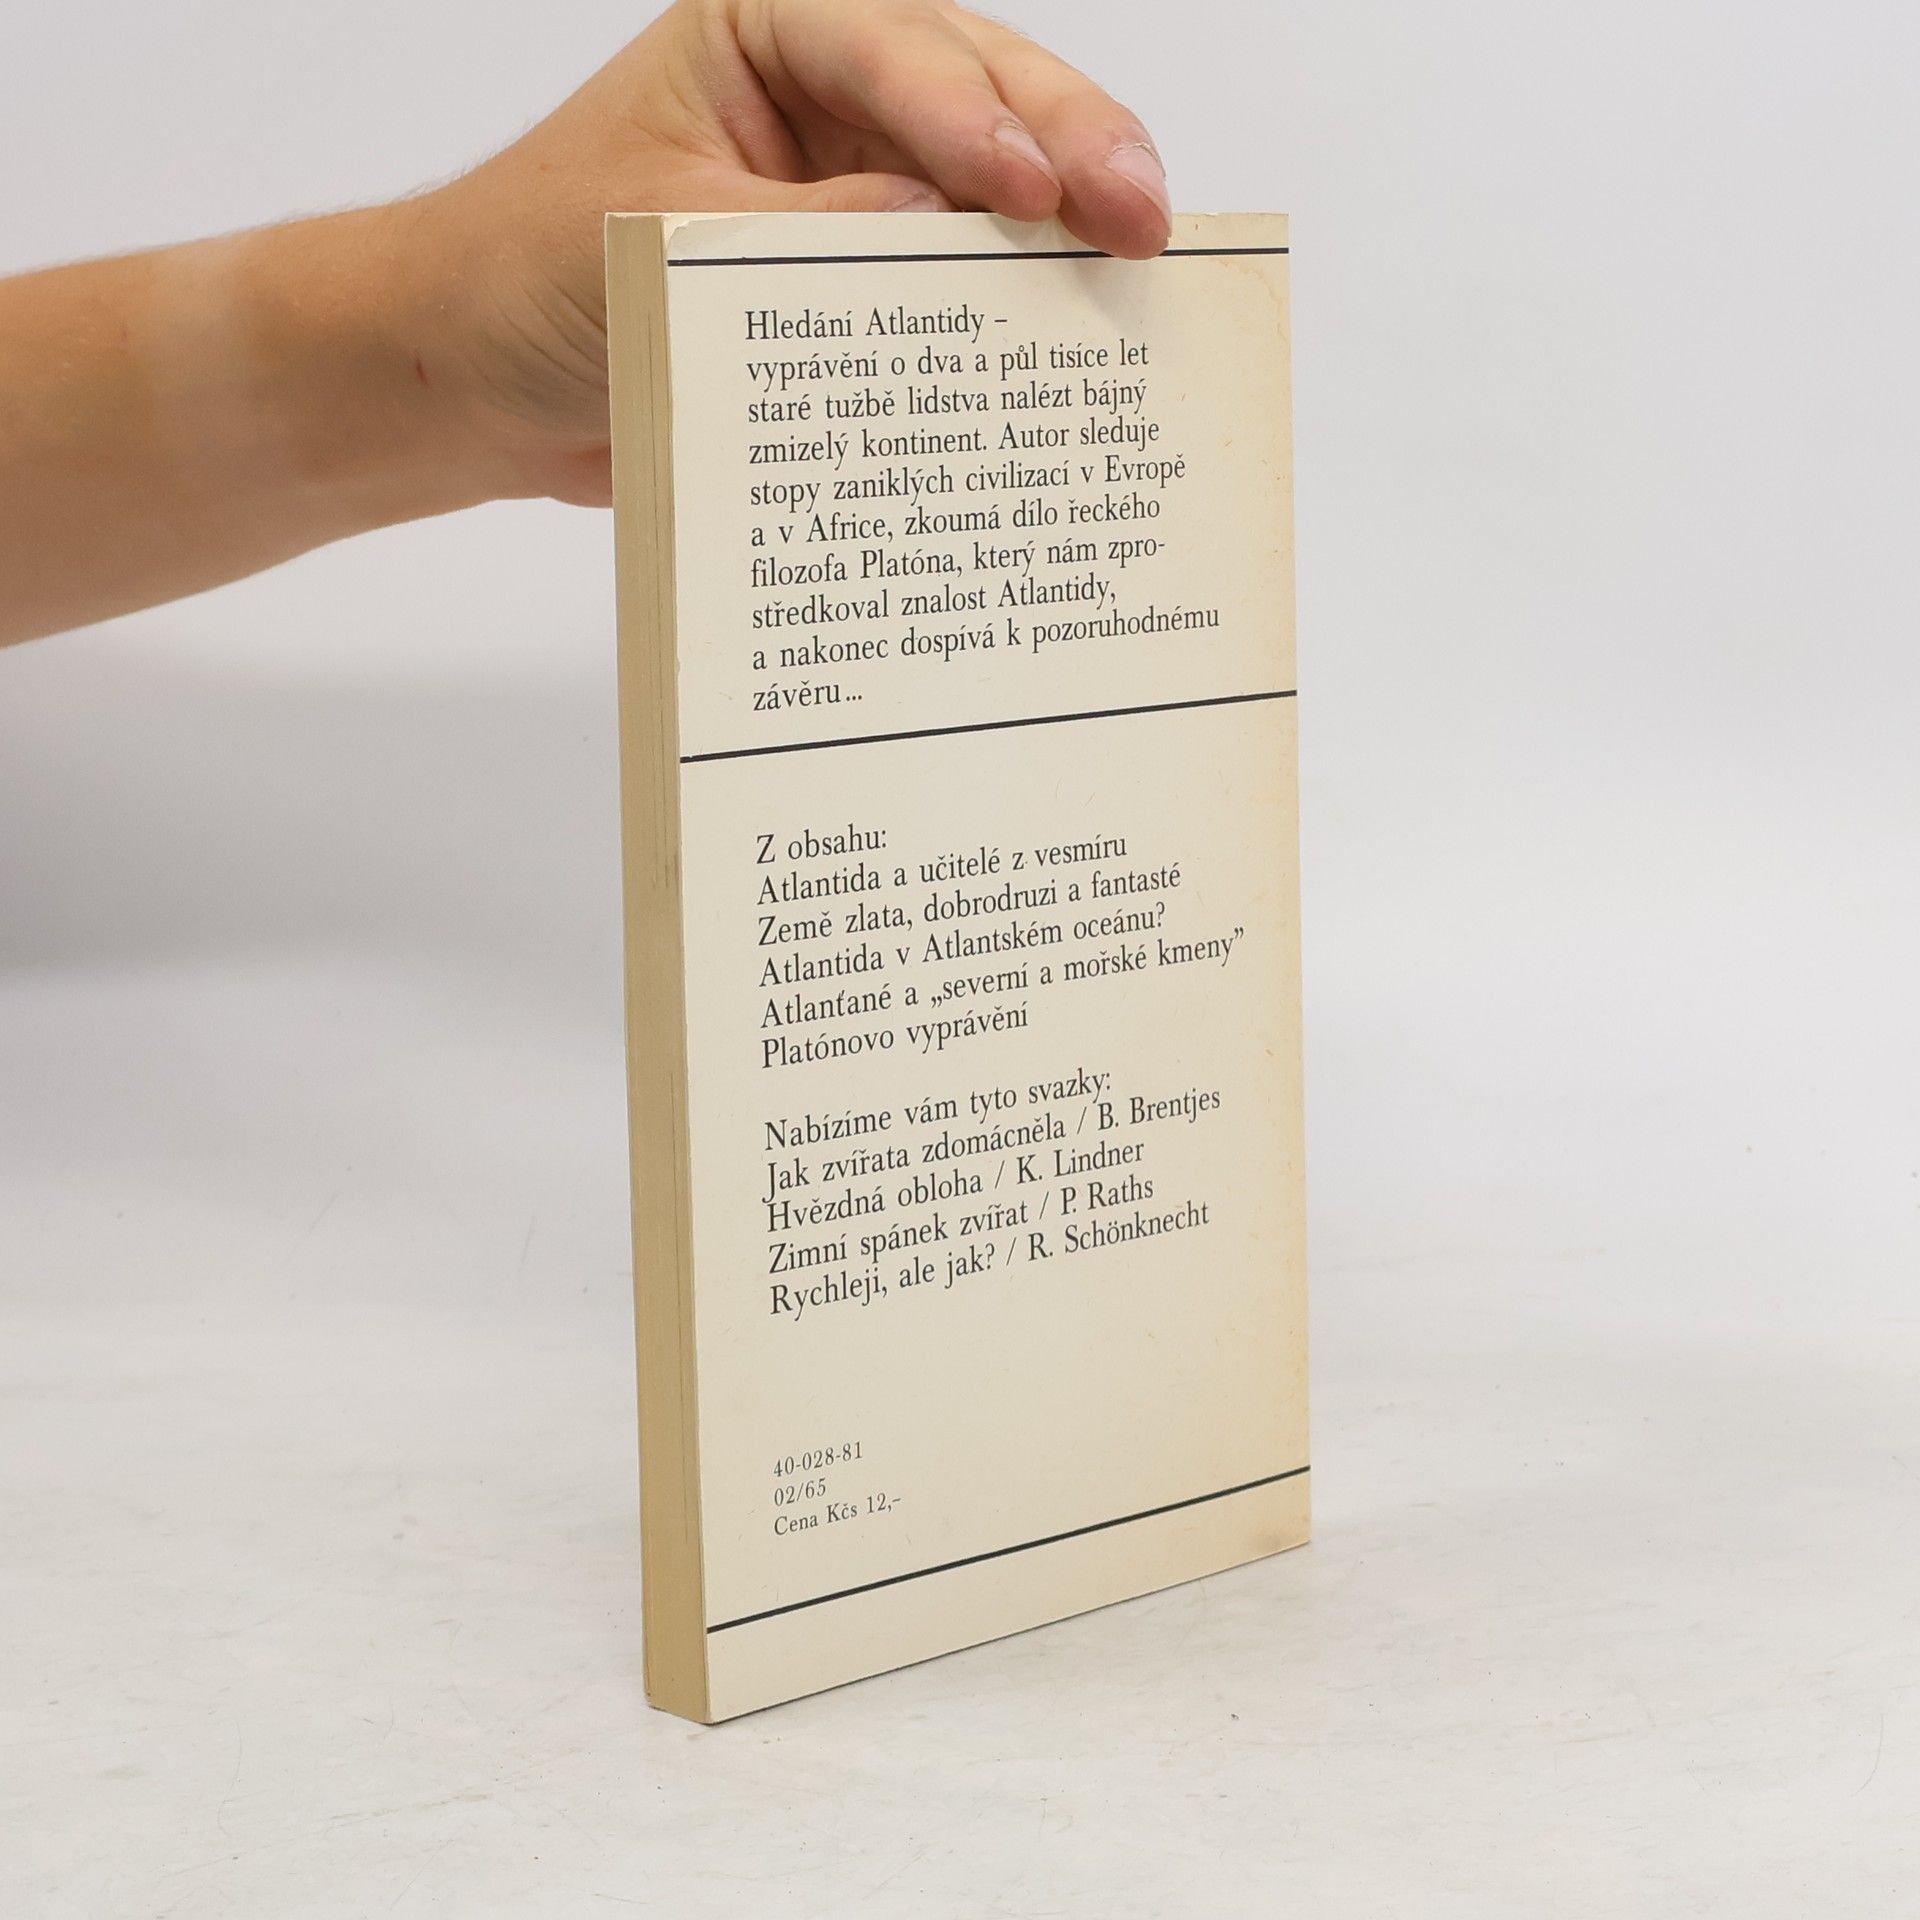 Hledání Atlantidy –
vyprávění o dva a půl tisíce let
staré tužbě lidstva nalézt bájný
zmizelý kontinent. Autor sleduje
stopy zaniklých civilizací v Evropě
a v Africe, zkoumá dílo řeckého
filozofa Platóna, který nám zpro-
středkoval znalost Atlantidy,
a nakonec dospívá k pozoruhodnému
závěru...
Z obsahu:
Atlantida a učitelé z vesmíru
Země zlata, dobrodruzi a fantasté
Atlantida v Atlantském oceánu?
Atlanťané a „severní a mořské kmeny”
Platónovo vyprávění
Nabízíme vám tyto svazky:
Jak zvířata zdomácněla / B. Brentjes
Hvězdná obloha / K. Lindner
Zimní spánek zvířat / P. Raths
Rychleji, ale jak? / R. Schönknecht
40-028-81
02/65
Cena Kčs 12,–